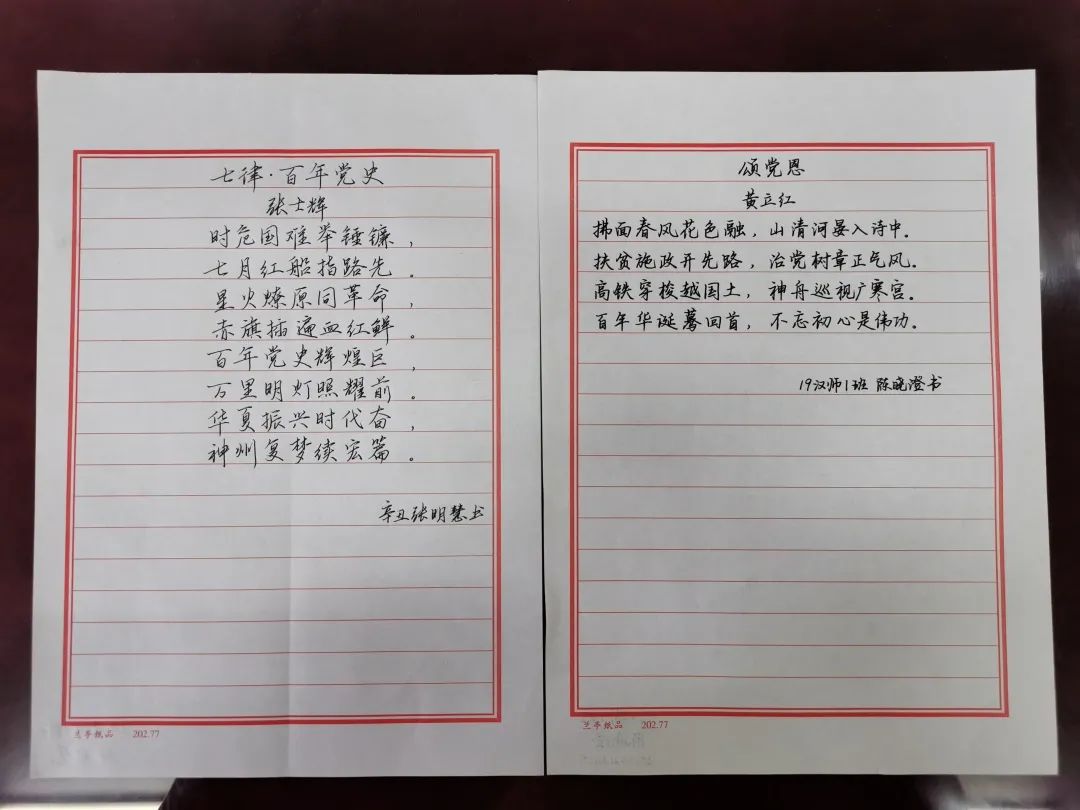 七律·百年党史
张士辉
时危国难举锤镰，
七月红船指路先。
星火燎原同革命，
赤旗插遍血红鲜。
百年党史辉煌巨，
万里明灯照耀前。
华夏振兴时代奋，
神州复梦续宏篇。
辛丑张明慧书
兰亭纸品 202.77
颂党恩
黄立红
拂面春风花色融，山清河晏入诗中。
扶贫施政开先路，治党树章正气风。
高铁穿梭越国土，神舟巡视广寒宫。
百年华诞蓦回首，不忘初心是伟功。
19汉师1班 陈晓澄书
兰亭纸品 202.77